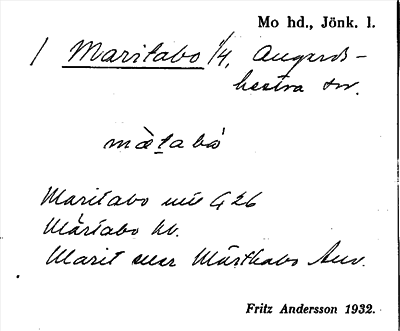 Mo hd., Jönk. l.
/ Maritabo 1/4, Augerds-
hestra sn.
mæ̀tabo
Maritabo G 26
Märtabo hb.
Marit Märthabo
Fritz Andersson 1932.